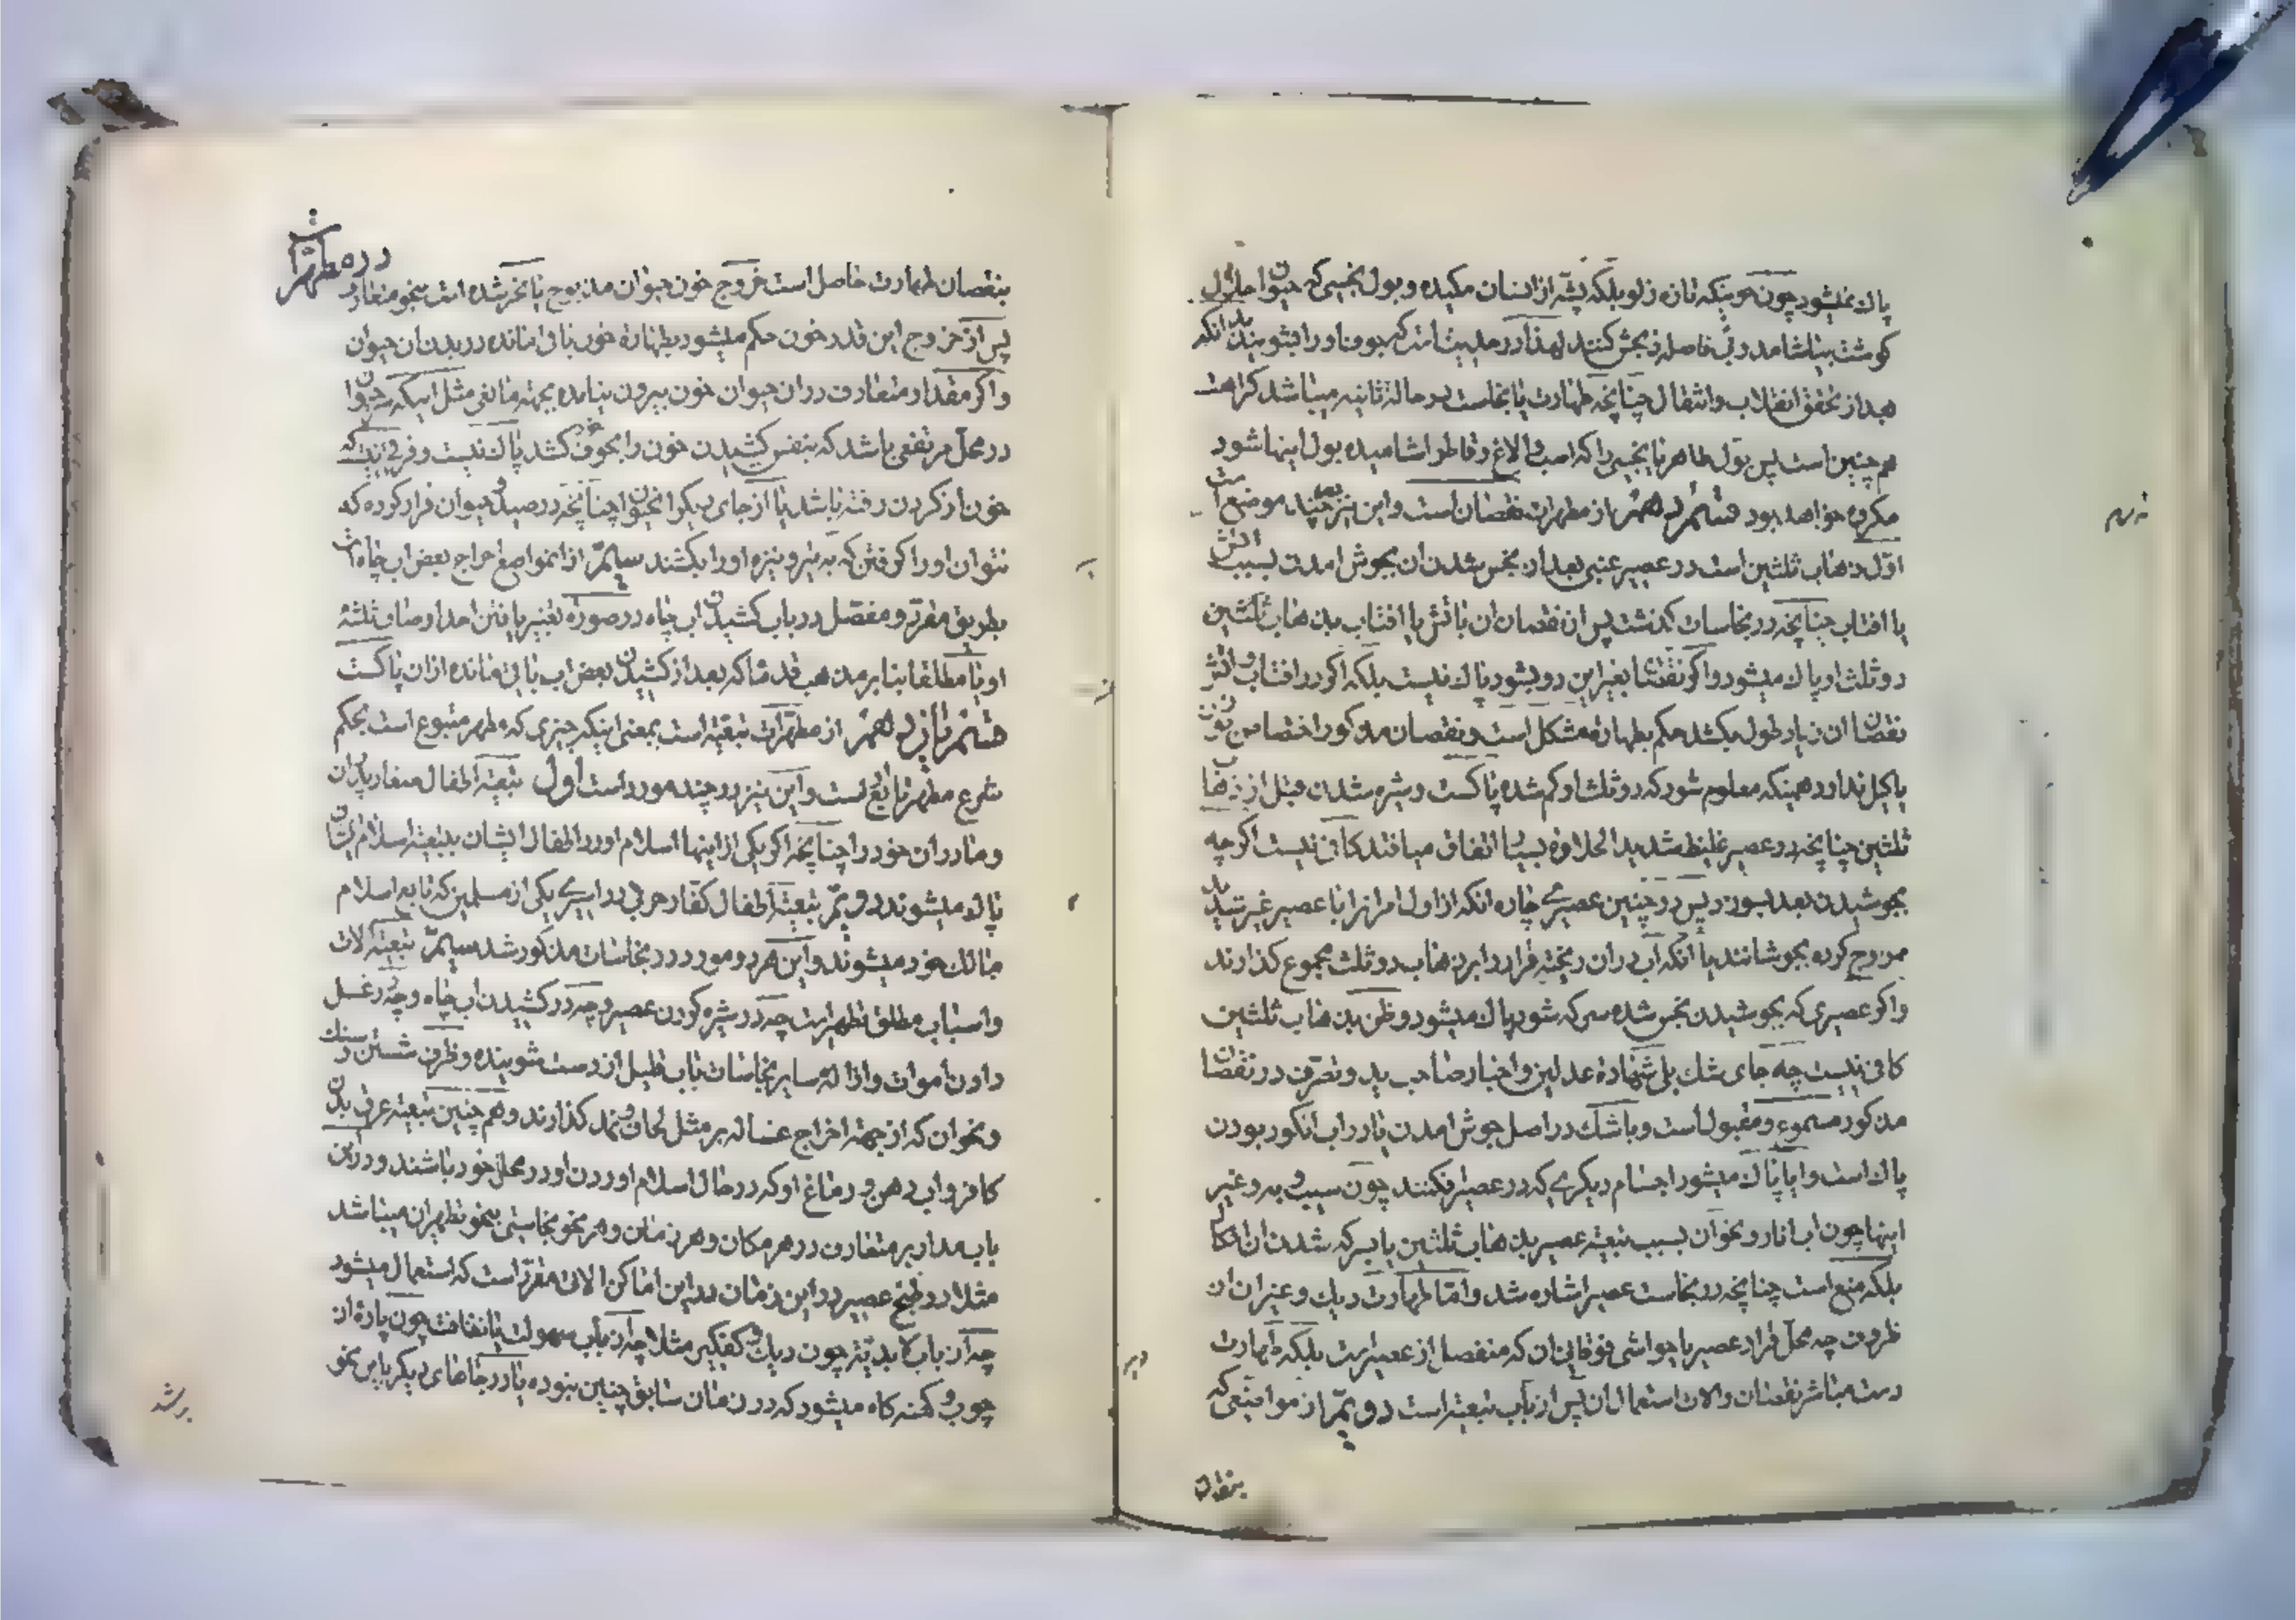 پاك نمیشود چون خونیکه تازه زلو بلکه پشّه از انسان مکیده و بول نجسی که حیوان حلال
کوشت بیاشامد و بی فاصله زبحش کنند لهذا در حدیث است که جوف او را بشویند بلکه
بعد از تحقق انقلاب و انتقال چنانچه طهارت یا نجاست در حالة ثانیه میباشد کراهت
هم چنین است پس بول طاهر یا نجسی را که اسب و الاغ و قاطر اشامیده بول اینها شود
مکروه خواهد بود قسم دهم از مطهرات نقصان است و این نیز در چند موضع است
اوّل ذهاب ثلثین است در عصیر عنبی بعد از نجس شدن ان بجوش امدن بسبب اتش
یا افتاب چنانچه در نجاسات کذشت پس از نقصان ان باتش یا افتاب بذهاب ثلثین
دو ثلث او پاك میشود و اکر نقصانها بغیر این دو بشود پاك نیست بلکه اکر در افتاب و اتش
نقصان ان زیاد طول میکشد حکم بطهارة مشکل است و نقصان مذکور اختصاص بوزن
یا کیل ندارد همینکه معلوم شود که دو ثلث او کم شده پاکست و شیره شدن قبل از ذهاب
ثلثین چنانچه در عصیر غلیظ شدید الحلاوة بسیار اتفاق میافتد کافی نیست اکر چه
بجوشیدن بعد بسوزد پس در چنین عصیری چاره انکه از اول امر انرا با عصیر غیر شدید
ممزوج کرده بجوشانند یا انکه آب در ان ریخته قرار را بر ذهاب دو ثلث مجموع کذارند
و اکر عصیری که بجوشیدن نجس شده سرکه شود پاك میشود و ظن بذهاب ثلثین
کافی نیست چه جای شك بلی شهادة عدلین و اخبار صاحب ید و تصرّف در نقصان
مذکور مسموع و مقبول است و با شك در اصل جوش امدن یا در اب انکور بودن
پاك است و ایا پاك میشود اجسام دیکری که در عصیر افکنند چون سیب و به و غیر
اینها چون اب انار و نحوان بسبب تبعیة عصیر بذهاب ثلثین یا بسرکه شدن ان اشکال
بلکه منع است چنانچه در نجاست عصیر اشاره شد و امّا طهارت دیك و غیر ان از
ظروف چه محلّ قرار عصیر یا حواشی فوقانی ان که منفصل از عصیر است بلکه طهارت
دست مباشر نقصان و الات استعمال ان پس از باب تبعیة است دویمّ از مواضعی که
بنقصان
در مطهرات
بنقصان طهارت حاصل است خروج خون حیوان مذبوح یا نحر شده است بنحو متعارف
پس از خروج این قدر خون حکم میشود بطهارة خون باقی مانده در بدن ان حیوان
و اکر مقدار متعارف در ان حیوان خون بیرون نیامده بجهة مانعی مثل اینکه حیوان
در محلّ مرتفعی باشد که بنفس کشیدن خون را بجوف خود کشد پاك نیست و فرقی نیست که
خون از کردن رفته باشد یا از جای دیکر انحیوان چنانچه در صید و حیوان فرار کرده که
نتوان او را کرفتن که به تیر و نیزه او را بکشند سیمّ از انمواضع اخراج بعض اب چاه است
بطریق مقرّر و مفصّل در باب کشیدن اب چاه در صورة تغییر یافتن احد اوصاف ثلثهٔ
او یا مطلقا بنابر مذهب قدما که بعد از کشیدن بعض اب باقی مانده از ان پاکست
قسم یازدهم از مطهّرات تبعیّة است بمعنی اینکه چیزی که مطهر متبوع است بحکم
شرع مطهر تابع است و این نیز در چند مورد است اول تبعیّة اطفال کفار پدران
و مادران خود را چنانچه اکر یکی از اینها اسلام اورد اطفال ایشان بتبعیّة اسلام ایشان
پاك میشوند دویمّ تبعیّة اطفال کفّار حربی در اسیری یکی از مسلمین که تابع اسلام
مالك خود میشوند و این هر دو مورد در نجاسات مذکور شد سیمّ تبعیّة الات
و اسباب مطلق تطهیر است چه در شیره کردن عصیر و چه در کشیدن اب چاه و چه در غسل
دادن اموات و ازالهٔ سایر نجاسات باب قلیل از دست شوینده و ظرف شستن و سنك
و نحو ان که از جهة اخراج غساله بر مثل لحاف و نمد کذارند و هم چنین تبعیّة عرق بدن
کافر و اب دهن و دماغ او که در حال اسلام اوردن او در محل خود باشند و در این
باب مدار بر متعارف در هر مکان و هر زمان و هر نحو نجاستی بنحو تطهیر ان میباشد
مثلا در طبخ عصیر در این زمان در این اماکن الاتی مقرّر است که استعمال میشود
چه از باب لابدیّة چون دیك و کفکیر مثلا چه از باب سهولت یا نظافت چون پارۀ از
چوب و کهنه کاه میشود که در زمان سابق چنین نبوده یا در جاهای دیکر باین نحو